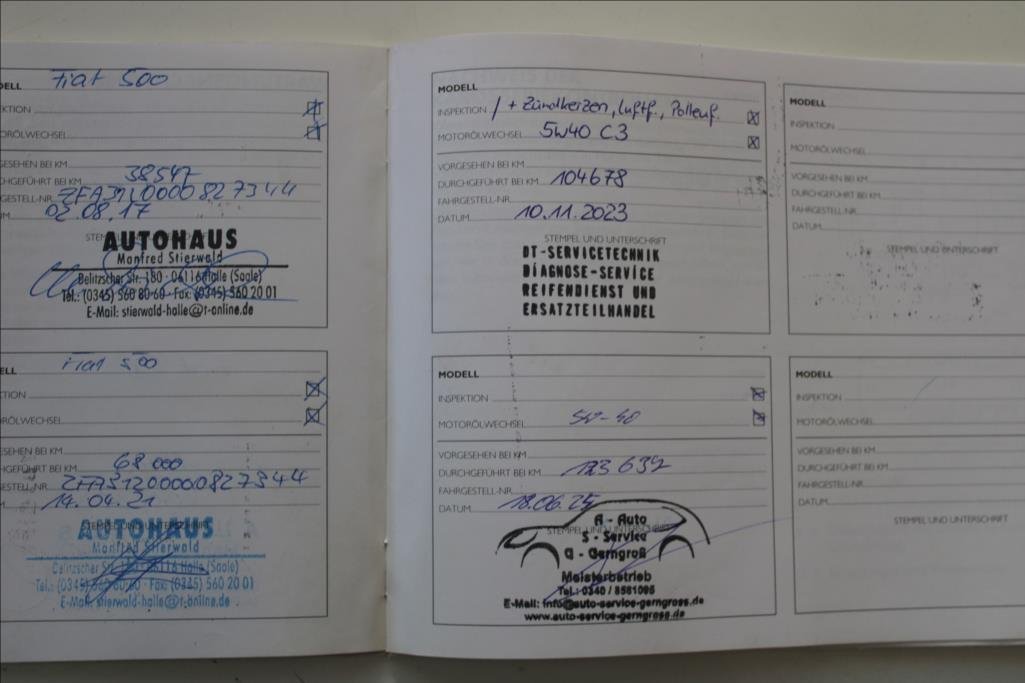 DELL Fiat 500
KTION
TORÖLWECHSEL
GESEHEN BEI KM
CHGEFÜHRT BEI KM 38547
GESTELL-NR. ZFA3120000827344
UM 02.08.17
AUTOHAUS
Manfred Stierwald
Delitzscher Str. 180 · 06116 Halle (Saale)
Tel.: (0345) 560 80-60 · Fax: (0345) 560 20 01
E-Mail: stierwald-halle@t-online.de
ELL Fiat 500
TION
RÖLWECHSEL
ESEHEN BEI KM
HGEFÜHRT BEI KM 68 000
ESTELL-NR. ZFA3120000827344
14.04.21
STEMPEL
AUTOHAUS
Manfred Stierwald
Delitzscher Str. 180 · 06116 Halle (Saale)
Tel.: (0345) 560 80-60 · Fax: (0345) 560 20 01
E-Mail: stierwald-halle@t-online.de
MODELL
INSPEKTION / + Zündkerzen, Luftf., Pollenf.
MOTORÖLWECHSEL 5W40 C3
VORGESEHEN BEI KM
DURCHGEFÜHRT BEI KM 104678
FAHRGESTELL-NR.
DATUM 10.11.2023
STEMPEL UND UNTERSCHRIFT
DT-SERVICETECHNIK
DIAGNOSE-SERVICE
REIFENDIENST UND
ERSATZTEILHANDEL
MODELL
INSPEKTION
MOTORÖLWECHSEL 5W-40
VORGESEHEN BEI KM
DURCHGEFÜHRT BEI KM 123 637
FAHRGESTELL-NR.
DATUM 18.06.25
STEMPEL UND UNTERSCHRIFT
A - Auto
S - Service
G - Gerngroß
Meisterbetrieb
Tel.: 0340 / 8581095
E-Mail: info@auto-service-gerngross.de
www.auto-service-gerngross.de
MODELL
INSPEKTION
MOTORÖLWECHSEL
VORGESEHEN BEI KM
DURCHGEFÜHRT BEI KM
FAHRGESTELL-NR.
DATUM
STEMPEL UND UNTERSCHRIFT
MODELL
INSPEKTION
MOTORÖLWECHSEL
VORGESEHEN BEI KM
DURCHGEFÜHRT BEI KM
FAHRGESTELL-NR.
DATUM
STEMPEL UND UNTERSCHRIFT